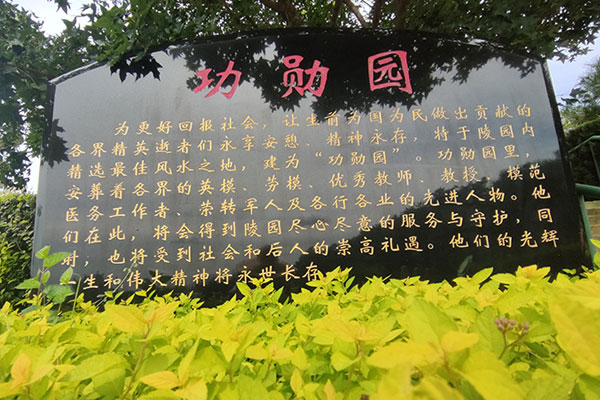 功勋园
为更好回报社会，让生前为国为民做出贡献的
各界精英逝者们永享安憩、精神永存，特于陵园内
精选最佳风水之地，建为“功勋园”。功勋园里，
安葬着各界的英模、劳模、优秀教师、教授、模范
医务工作者、荣转军人及各行各业的先进人物。他
们在此，将会得到陵园尽心尽意的服务与守护，同
时，也将受到社会和后人的崇高礼遇。他们的光辉
一生和伟大精神将永世长存